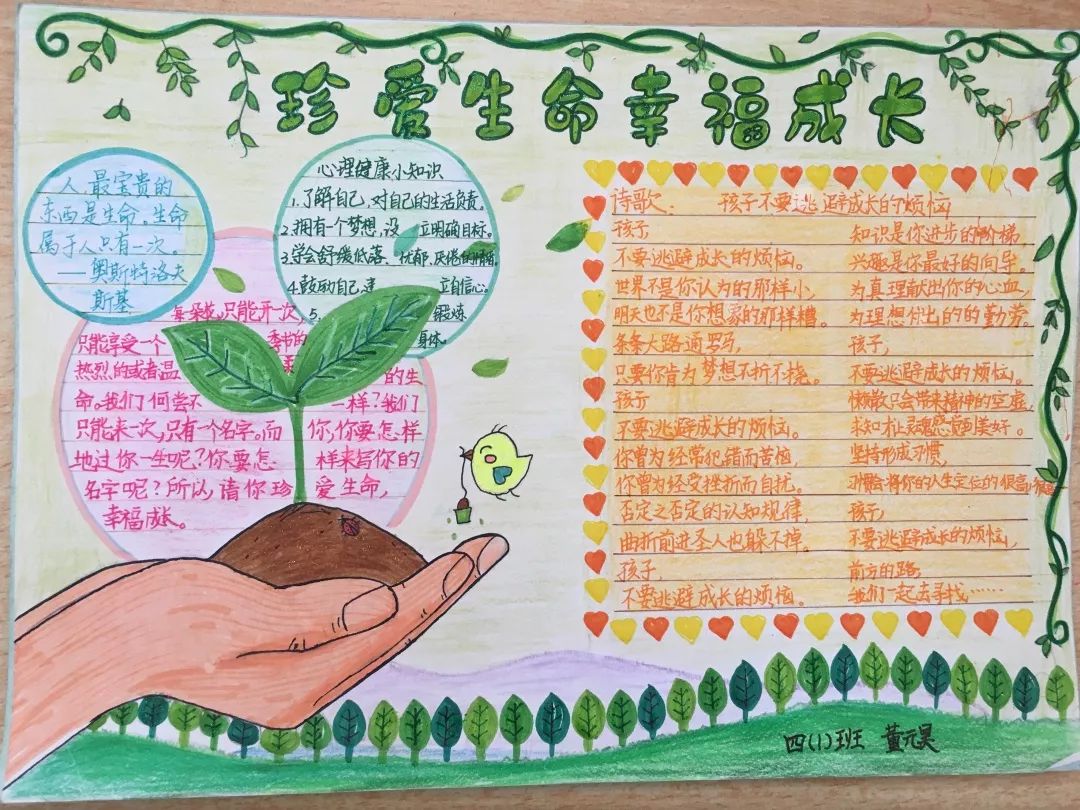 珍爱生命幸福成长
人最宝贵的
东西是生命,生命
属于人只有一次。
——奥斯特洛夫
斯基
心理健康小知识
1.了解自己,对自己的生活负责。
2.拥有一个梦想,设 立明确目标。
3.学会舒缓低落、忧郁、厌倦的情绪。
4.鼓励自己,建 立自信心。
5. 锻炼
身体。
每朵花,只能开一次,
只能享受一个 季节的
热烈的或者温 的生
命。我们何尝不 一样?我们
只能来一次,只有一个名字。而 你,你要怎样
地过你一生呢?你要怎 样来写你的
名字呢?所以,请你珍 爱生命,
幸福成长。
诗歌: 孩子不要逃避成长的烦恼
孩子
不要逃避成长的烦恼。
世界不是你认为的那样小,
明天也不是你想象的那样糟。
条条大路通罗马,
只要你肯为梦想不折不挠。
孩子
不要逃避成长的烦恼。
你曾为经常犯错而苦恼,
你曾为经受挫折而自扰。
否定之否定的认知规律,
曲折前进圣人也躲不掉。
孩子,
不要逃避成长的烦恼。
知识是你进步的阶梯
兴趣是你最好的向导。
为真理献出你的心血,
为理想付出的的勤劳。
孩子,
不要逃避成长的烦恼。
懒散只会带来精神的空虚,
未知 灵魂 美好。
坚持形成习惯,
习惯会将你的人生定位的很高
孩子,
不要逃避成长的烦恼,
前方的路,
我们一起去寻找……
四(1)班 董元昊